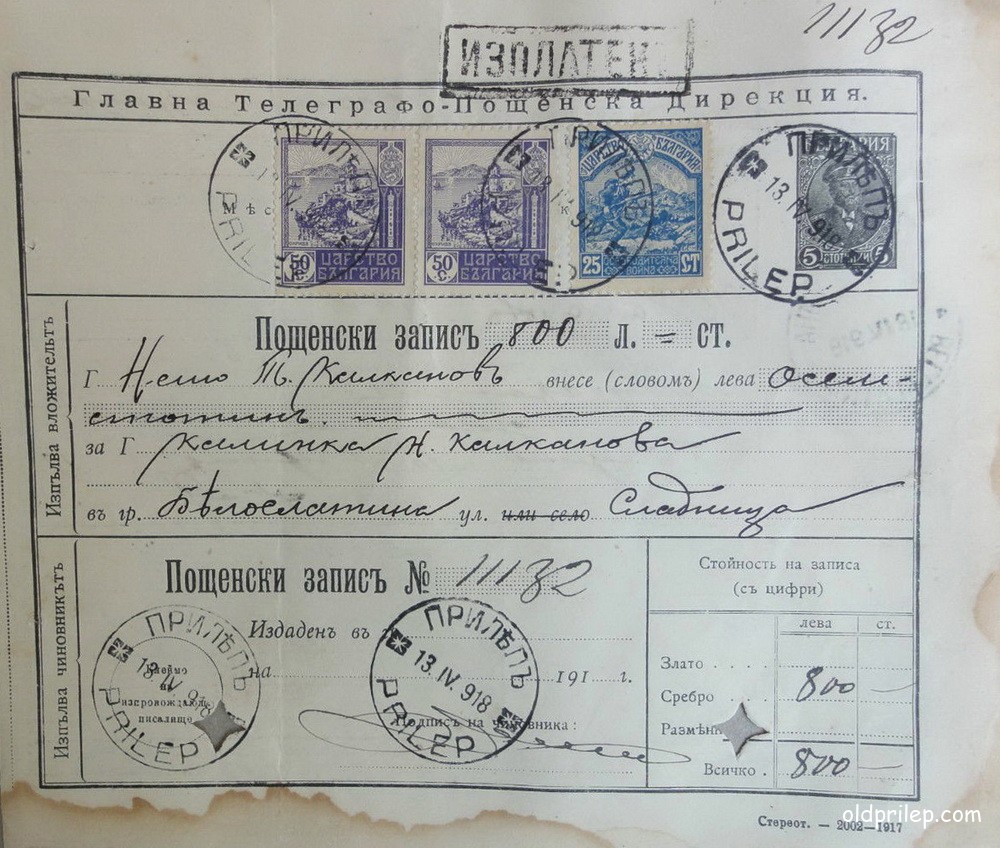 11132
ИЗПЛАТЕНЪ
Главна Телеграфо-Пощенска Дирекция.
ПРИЛѢПЪ
PRILEP
50 С
ЦАРСТВО
БЪЛГАРИЯ
50 С
ЦАРСТВО
БЪЛГАРИЯ
ПРИЛѢПЪ
13 IV 918
ЦАРСТВО БЪЛГАРИЯ
25 СТ
ВОЙНА
ПРИЛѢПЪ
13. IV. 918
PRILEP
5 СТОТИНКИ 5
Изпълва вложительтъ
Пощенски записъ 800 л. = ст.
Г. Нешо Т. Калкановъ внесе (словомъ) лева Осем-
стотинъ.
за Г Калинка Н. Калканова
въ гр. Бѣлослатина ул. или село Сладница
Изпълва чиновникътъ
Пощенски записъ № 11132
Издаденъ въ
на 191 г.
изпровождающо
писалище
Подпись на чиновника:
ПРИЛѢПЪ
PRILEP
ПРИЛѢПЪ
13. IV. 918
PRILEP
Стойность на записа
(съ цифри)
лева ст.
Злато
Сребро 800 —
Размѣн
Всичко . 800 —
Стереот. — 2002—1917
oldprilep.com